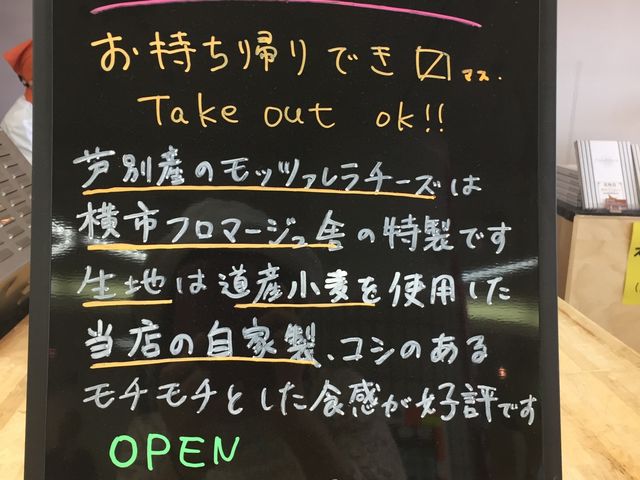 お持ち帰りでき〼マス.
Take out ok!!
芦別産のモッツァレラチーズは
横市フロマージュ舎の特製です
生地は道産小麦を使用した
当店の自家製、コシのある
モチモチとした食感が好評です
OPEN